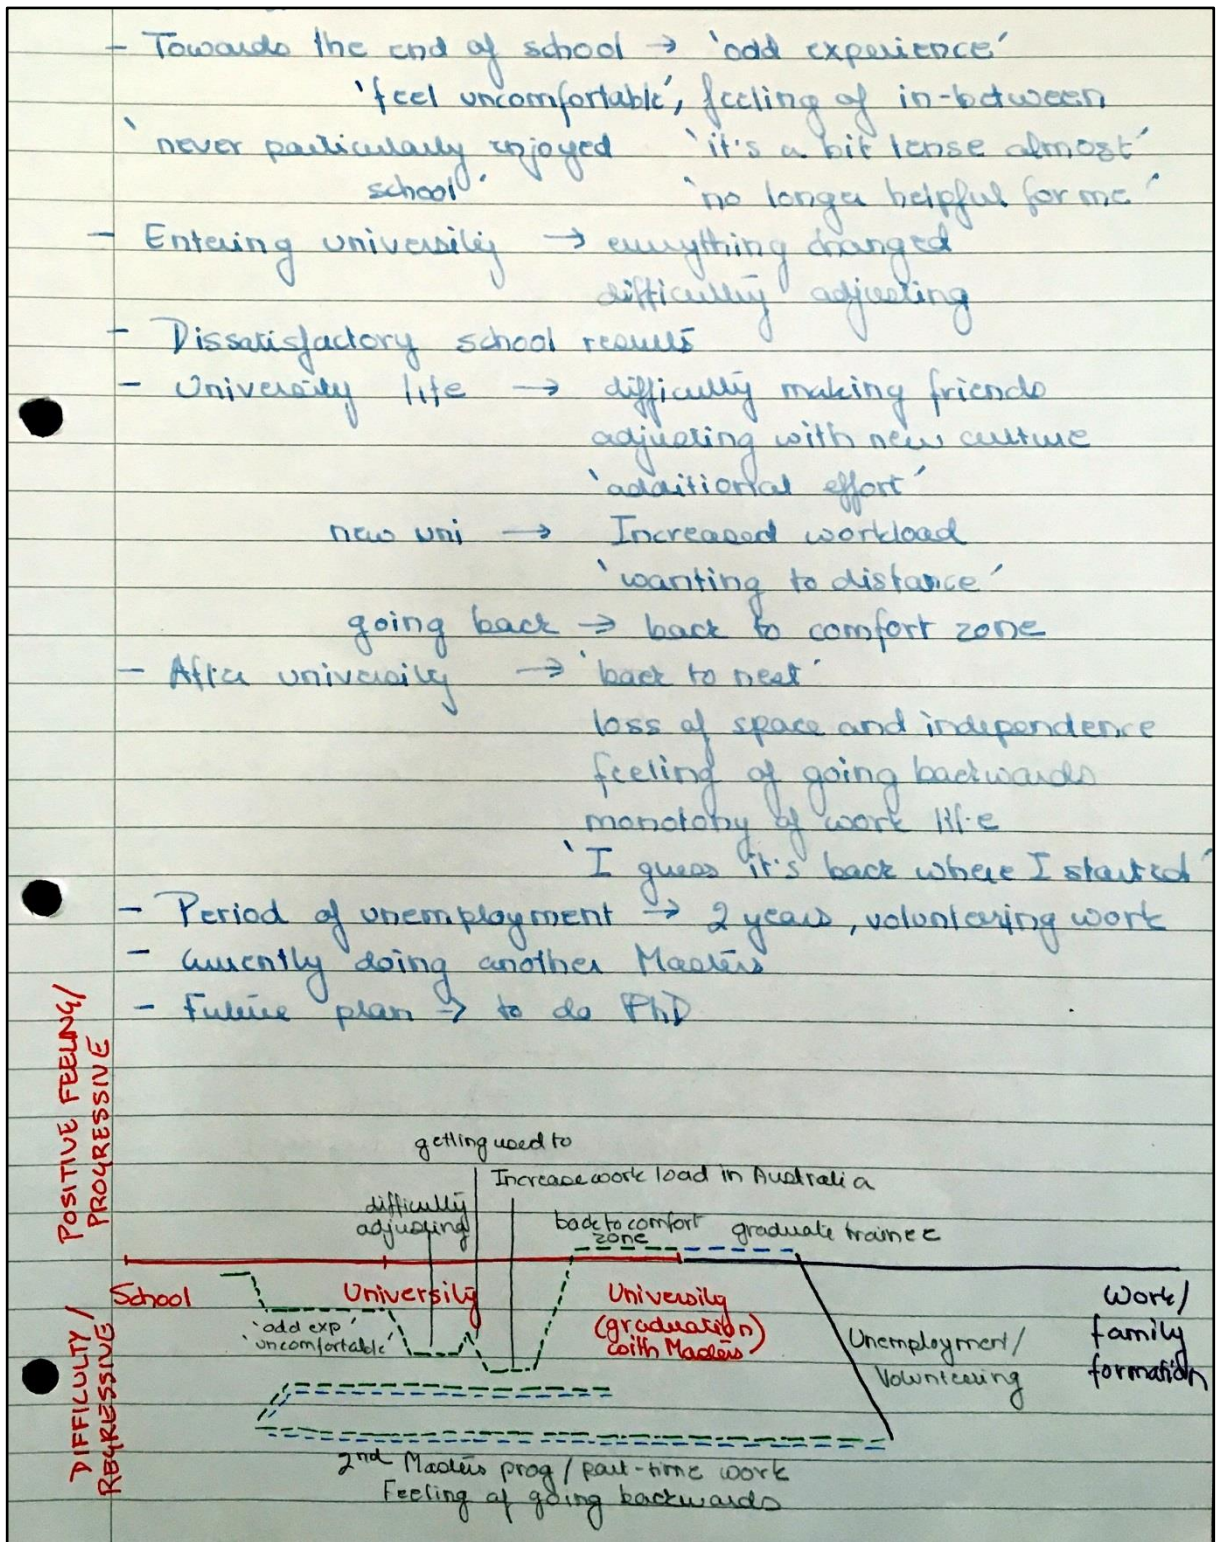 - Towards the end of school → 'odd experience'
'feel uncomfortable', feeling of in-between
'never particularly enjoyed 'it's a bit tense almost'
school' 'no longer helpful for me'
- Entering university → everything changed
difficulty adjusting
- Dissatisfactory school results
- University life → difficulty making friends
adjusting with new culture
'additional effort'
new uni → Increased workload
'wanting to distance'
going back → back to comfort zone
- After university → 'back to nest'
loss of space and independence
feeling of going backwards
monotony of work life
'I guess it's back where I started'
- Period of unemployment → 2 years, volunteering work
- Currently doing another Masters
- Future plan → to do PhD
POSITIVE FEELING/
PROGRESSIVE
getting used to
Increase work load in Australia
difficulty
adjusting
back to comfort
zone
graduate trainee
School
University
University
(graduation)
with Masters
Work/
family
formation
'odd exp'
'uncomfortable'
Unemployment/
Volunteering
DIFFICULTY/
REGRESSIVE
2nd Masters prog/part-time work
Feeling of going backwards